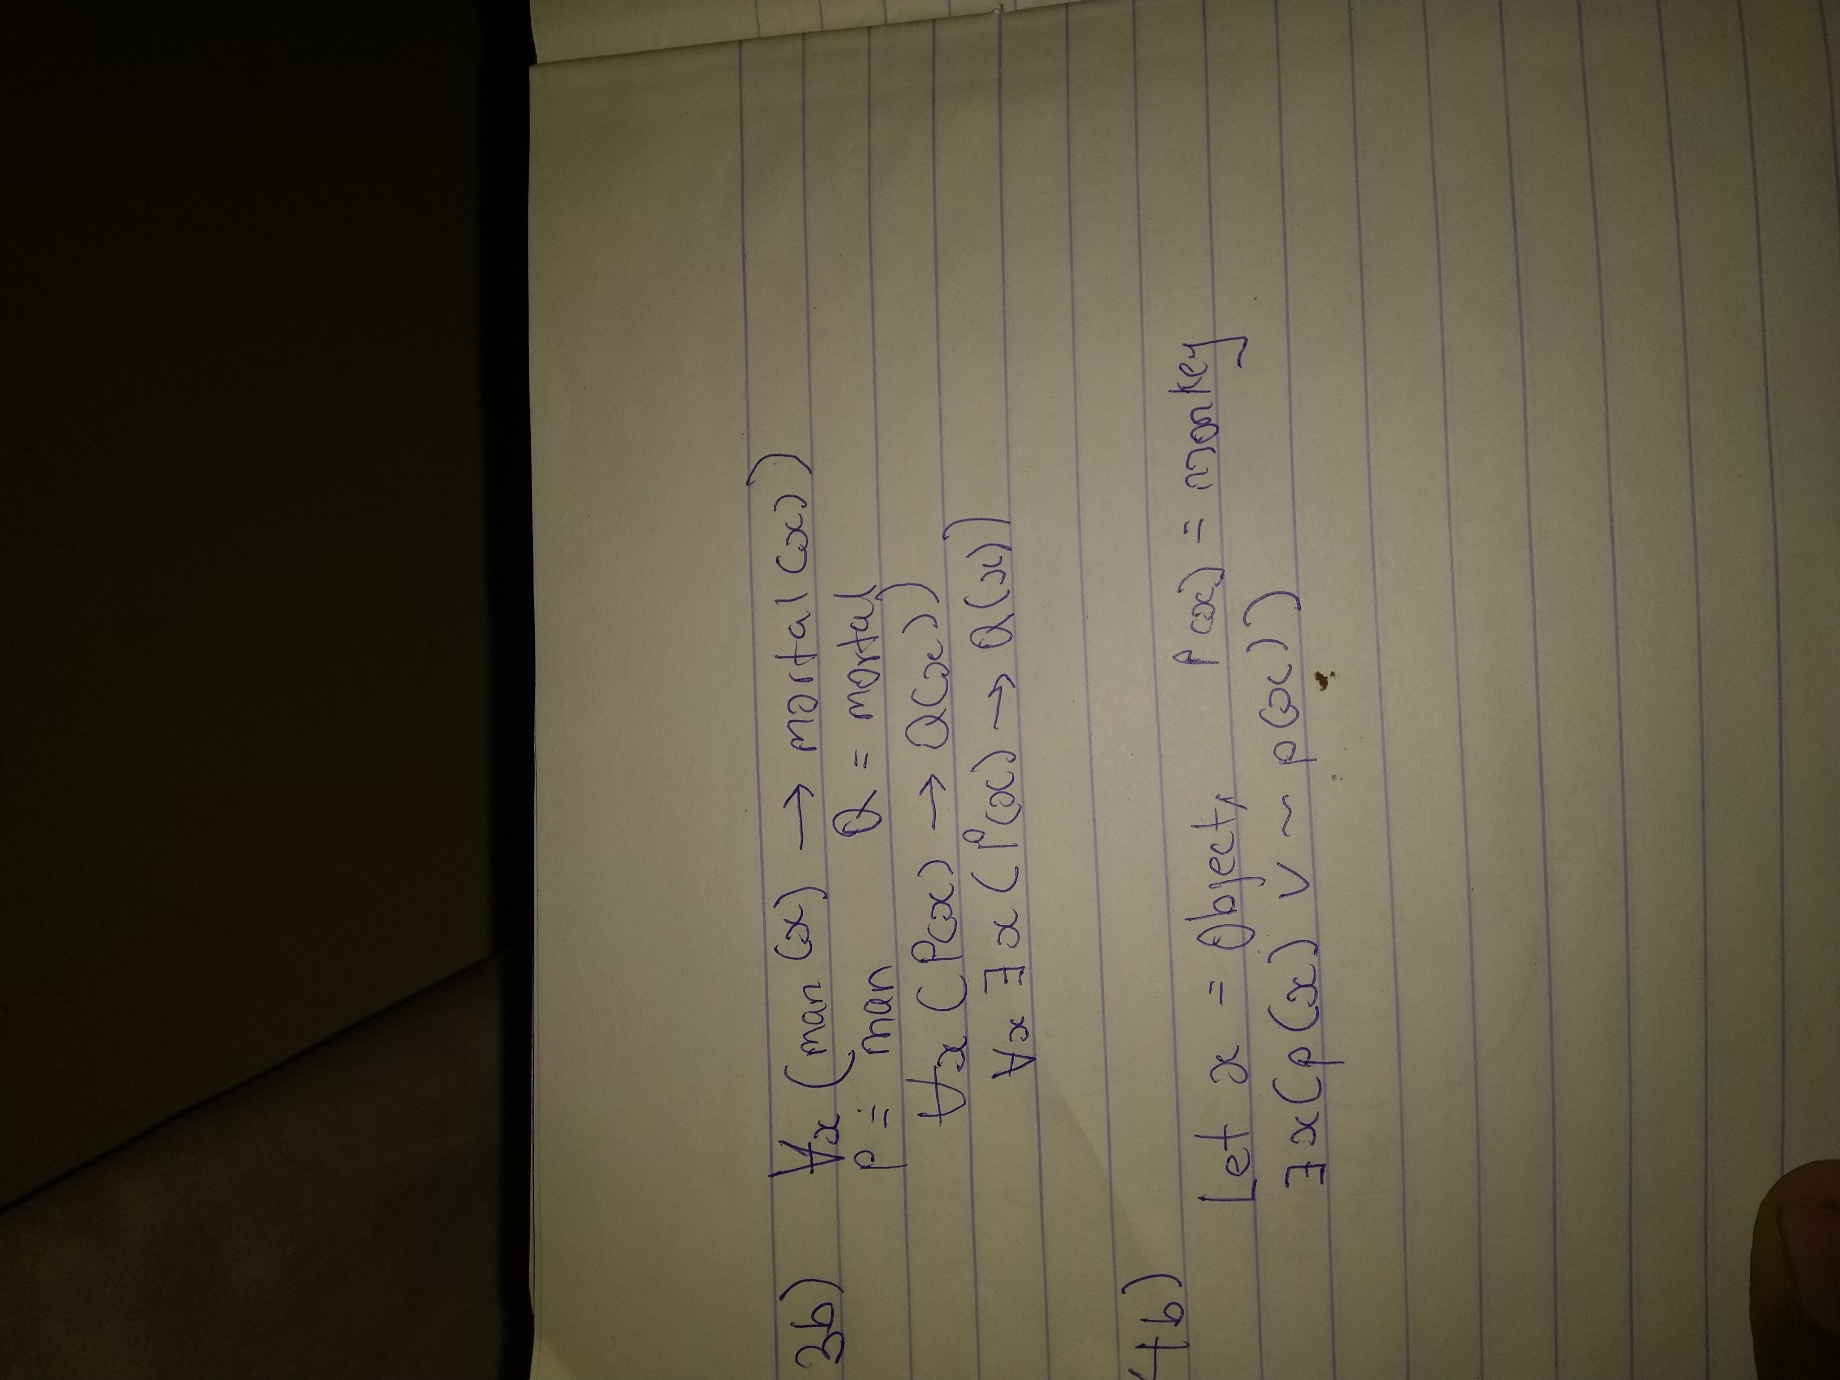 3b) ∀x (man (x) → mortal (x))
P = man Q = mortal
∀x (P(x) → Q(x))
∀x ∃x (P(x) → Q(x))
4b)
Let x = Object, P(x) = monkey
∃x(p(x) ∨ ~ p(x))